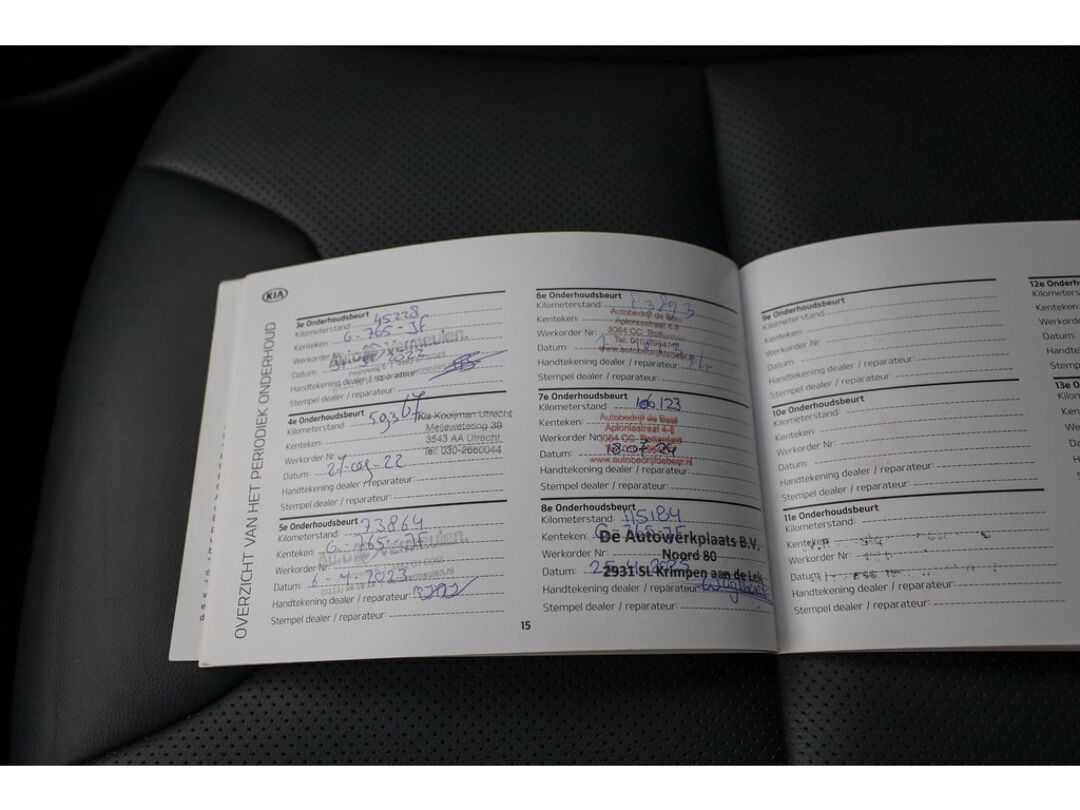 KIA
OVERZICHT VAN HET PERIODIEK ONDERHOUD
3e Onderhoudsbeurt
Kilometerstand 45228
Kenteken: G-765-JF
Werkorder
Auto Vermeulen.
Datum:
Handtekening dealer / reparateur:
Stempel dealer / reparateur:
4e Onderhoudsbeurt
Kilometerstand: 59367
Kia Kooijman Utrecht
Kenteken:
Meijewetering 39
Werkorder Nr:
3543 AA Utrecht
Datum:
Tel: 030-2660044
Handtekening dealer / reparateur:
Stempel dealer / reparateur:
5e Onderhoudsbeurt
Kilometerstand: 73864
Kenteken: G-765-JF
Auto Vermeulen.
Werkorder Nr:
Datum: 6-4-2023
Handtekening dealer / reparateur:
Stempel dealer / reparateur:
6e Onderhoudsbeurt
Kilometerstand: 83893
Autobedrijf de Beer
Kenteken:
Aploniastraat 4-8
Werkorder Nr:
3084 CC Rotterdam
Datum:
Handtekening dealer / reparateur:
Stempel dealer / reparateur:
7e Onderhoudsbeurt
Kilometerstand: 106123
Autobedrijf de Beer
Kenteken:
Aploniastraat 4-8
Werkorder Nr:
3084 CC Rotterdam
Datum: 18-07-24
www.autobedrijfdebeer.nl
Handtekening dealer / reparateur:
Stempel dealer / reparateur:
8e Onderhoudsbeurt
Kilometerstand: 115184
Kenteken: G-765-JF
De Autowerkplaats B.V.
Werkorder Nr:
Noord 80
Datum:
2931 SL Krimpen aan de Lek
Handtekening dealer / reparateur:
Stempel dealer / reparateur:
15
9e Onderhoudsbeurt
Kilometerstand:
Kenteken:
Werkorder Nr:
Datum:
Handtekening dealer / reparateur:
Stempel dealer / reparateur:
10e Onderhoudsbeurt
Kilometerstand:
Kenteken:
Werkorder Nr:
Datum:
Handtekening dealer / reparateur:
Stempel dealer / reparateur:
11e Onderhoudsbeurt
Kilometerstand:
Kenteken:
Werkorder Nr:
Datum:
Handtekening dealer / reparateur:
Stempel dealer / reparateur:
12e Onderh
Kilometers
Kenteken:
Werkorder
Datum:
Handteke
Stempel
13e O
Kilome
Kente
Werk
Datu
Han
Ste